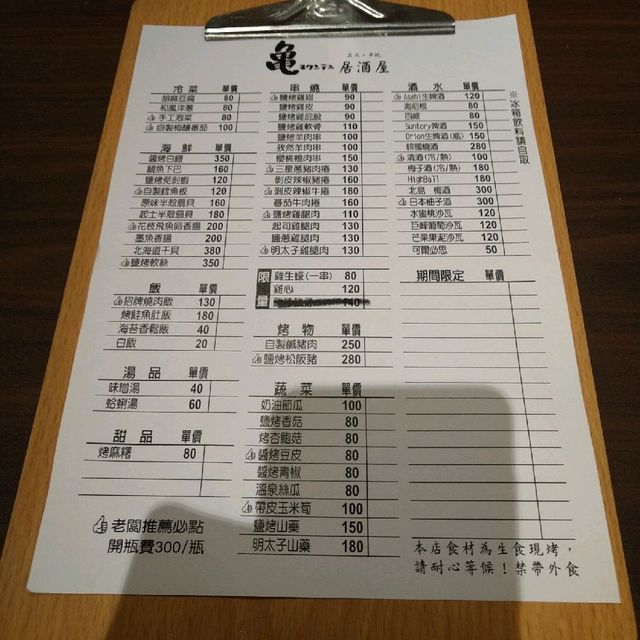 亀 居酒屋
冷菜 單價
胡麻豆腐 80
和風洋蔥 80
手工泡菜 80
自製梅釀番茄 100
海鮮 單價
醬烤白鰻 350
鯛魚下巴 160
鹽烤魚剝蝦 120
自製鱈魚板 120
原味半殼扇貝 160
起士半殼扇貝 180
花枝飛魚卵香腸 200
墨魚香腸 200
北海道干貝 380
鹽烤軟絲 350
飯 單價
招牌燒肉飯 130
烤鮭魚肚飯 180
海苔香鬆飯 40
白飯 20
湯品 單價
味噌湯 40
蛤蜊湯 60
甜品 單價
烤麻糬 80
老闆推薦必點
開瓶費300/瓶
串燒 單價
鹽烤雞翅 90
鹽烤雞皮 90
鹽烤雞屁股 90
鹽烤雞軟骨 110
鹽烤羊肉串 100
孜然羊肉串 100
櫻桃鴨肉串 150
三星蔥豬肉捲 130
剝皮辣椒豬捲 160
剝皮辣椒牛捲 180
蕃茄牛肉捲 160
鹽烤雞腿肉 110
起司雞腿肉 130
鹽蔥雞腿肉 130
明太子雞腿肉 130
限量
雞生蠔(一串) 80
雞心 120
140
烤物 單價
自製鹹豬肉 250
鹽烤松阪豬 280
蔬菜 單價
奶油節瓜 100
鹽烤香菇 80
烤杏鮑菇 80
醬烤豆皮 80
醬烤青椒 80
溫泉絲瓜 80
帶皮玉米筍 100
鹽烤山藥 150
明太子山藥 180
酒水 單價
Asahi生啤酒 120
海尼根 80
百威 80
Suntory啤酒 150
Orion生啤酒(瓶) 150
韓國燒酒 280
清酒(冷/熱) 100
梅子酒(冷/熱) 180
HighBall 180
北島 梅酒 300
日本柚子酒 300
水蜜桃沙瓦 120
巨峰葡萄沙瓦 120
芒果果泥沙瓦 120
可爾必思 50
※冰箱飲料請自取
期間限定 單價
本店食材為生食現烤，
請耐心等候！禁帶外食